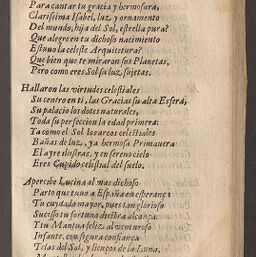 Para cantar tu gracia y hermosura,
Clarissima Isabel, luz, y ornamento
Del mundo, hija del Sol, estrella pura?
Que alegre en tu dichoso nacimiento
Estuuo la celeste Arquitetura?
Que bien que te miraron sus Planetas,
Pero como eres Sol su luz sujetas.
Hallaron las virtudes celestiales
Su centro en ti, las Gracias su alta Esfera,
Su palacio los dotes naturales,
Toda su perfeccion la edad primera:
Ya como el Sol los arcos celestiales
Bañas de luz, ya hermosa Primauera
El ayre ilustras, y en sereno cielo
Eres Cupido celestial del suelo.
Apercibe Lucina al mas dichoso
Parto que tuuo a España en esperança
Tu cuydado mayor, pues tan glorioso
Sucesso tu fortuna diestra alcança:
Tu Mantua feliz, al venturoso
Infante, con segura confiança
Telas del Sol, y lienços de la Luna,